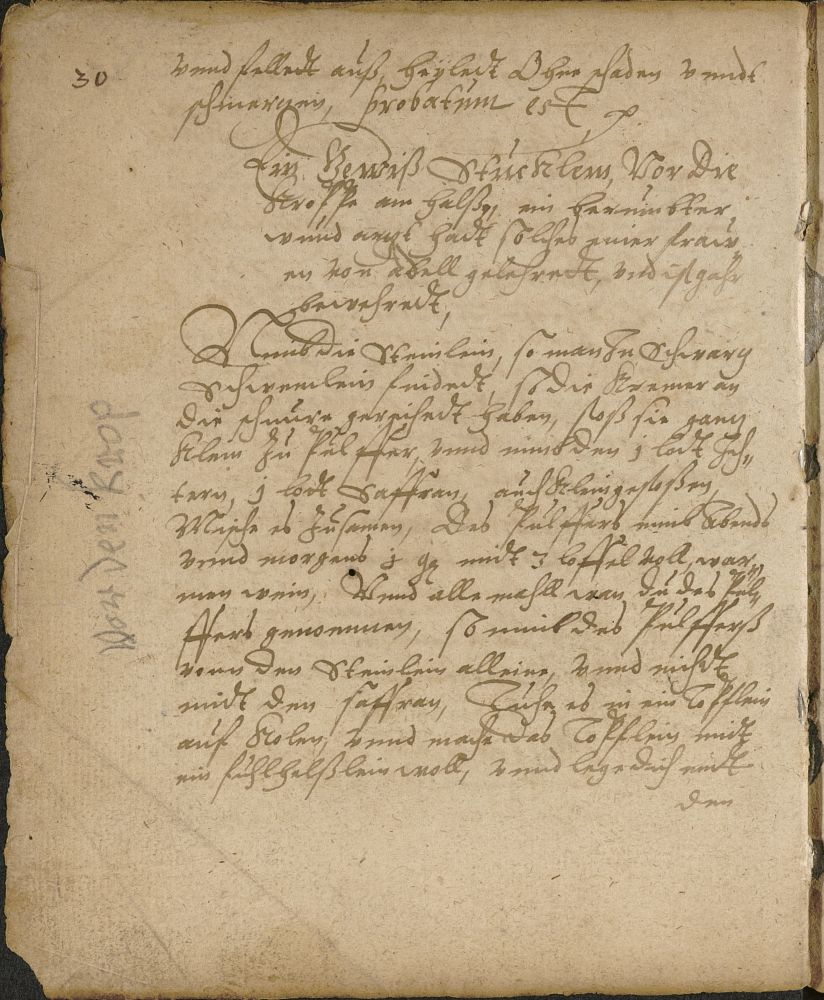 30
vnnd felledt auß, heyledt Ohne schaden vnndt
schmerzen, probatum est
Ein Gewiß Stücklein, Vor die
Kropffe am halße, ein berümbter
wund arzt hadt solches einer fraw
en von adell gelehredt, vnd ist gahr
bewehredt,
Nemb die Steinlein, so man In Schwarz
Schwemlein findedt, so die Kremer an
die schnüre gereihedt haben, stoß sie ganz
Klein Zu Pulffer, vnnd nimb den 1 lodt
1 lodt Saffran, auch Klein gestoßen,
Mische es Zusamen, Des Pulffers nimb Abends
vnnd morgens 1 midt 3 loffel voll, war„
men wein, Vnnd alle mahll wan du des Pul„
ffers genoemen, so nimb des Pulfferß
vonn den Steinlein alleine, vnnd nichdt
midt den saffran, Tuhe es in ein Topflein
auf Kolen, vnnd mache das Topflein midt
ein woll, vnnd lege dich midt
den